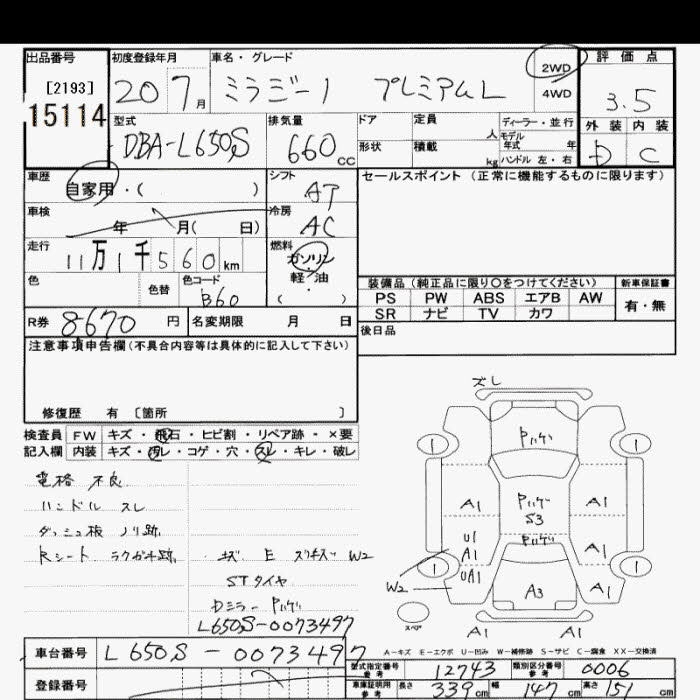 出品番号 初度登録年月 車名・グレード 評価点
[2193]
15114
20 7月 ミラジーノ プレミアムL 2WD 4WD 3.5
型式 排気量 ドア 定員 人 ディーラー・並行 外装 内装
DBA-L650S 660cc 形状 積載 kg モデル年式 年 ハンドル 左・右 D C
車歴 シフト セールスポイント (正常に機能するものに限ります)
自家用・( ) AT
車検 年 月( 日) 冷房 AC
走行 11万1千560km 燃料 ガソリン 軽油 ( )
色 色替 色コード B60
装備品(純正品に限り○をつけてください) 新車保証書
PS PW ABS エアB AW 有・無
SR ナビ TV カワ
R券 8670円 名変期限 月 日 後日品
注意事項申告欄(不具合内容等は具体的に記入して下さい)
修復歴 有 〔箇所 〕
検査員 FW キズ・飛石・ヒビ割・リペア跡・×要
記入欄 内装 キズ・汚レ・コゲ・穴・スレ・キレ・破レ
電格 不良
ハンドル スレ
ダッシュ板 ノリ跡
Rシート ラクガキ跡 キズ E W2
STタイヤ
Dミラー Pハゲ
L650S-0073497
ズレ
1 Pハゲ 1
A1 Pハゲ S3 A1
U1 A1 Pハゲ A1
1 UA1 A3 A1 1
W2
スペア A1 A1
A-キズ E-エクボ U-凹み W-補修跡 S-サビ C-腐食 XX-交換済
車台番号 L650S-0073497
型式指定番号 参考 12743 類別区分番号 参考 0006
登録番号
車庫証明用 参考 長さ 339cm 幅 147cm 高さ 151cm